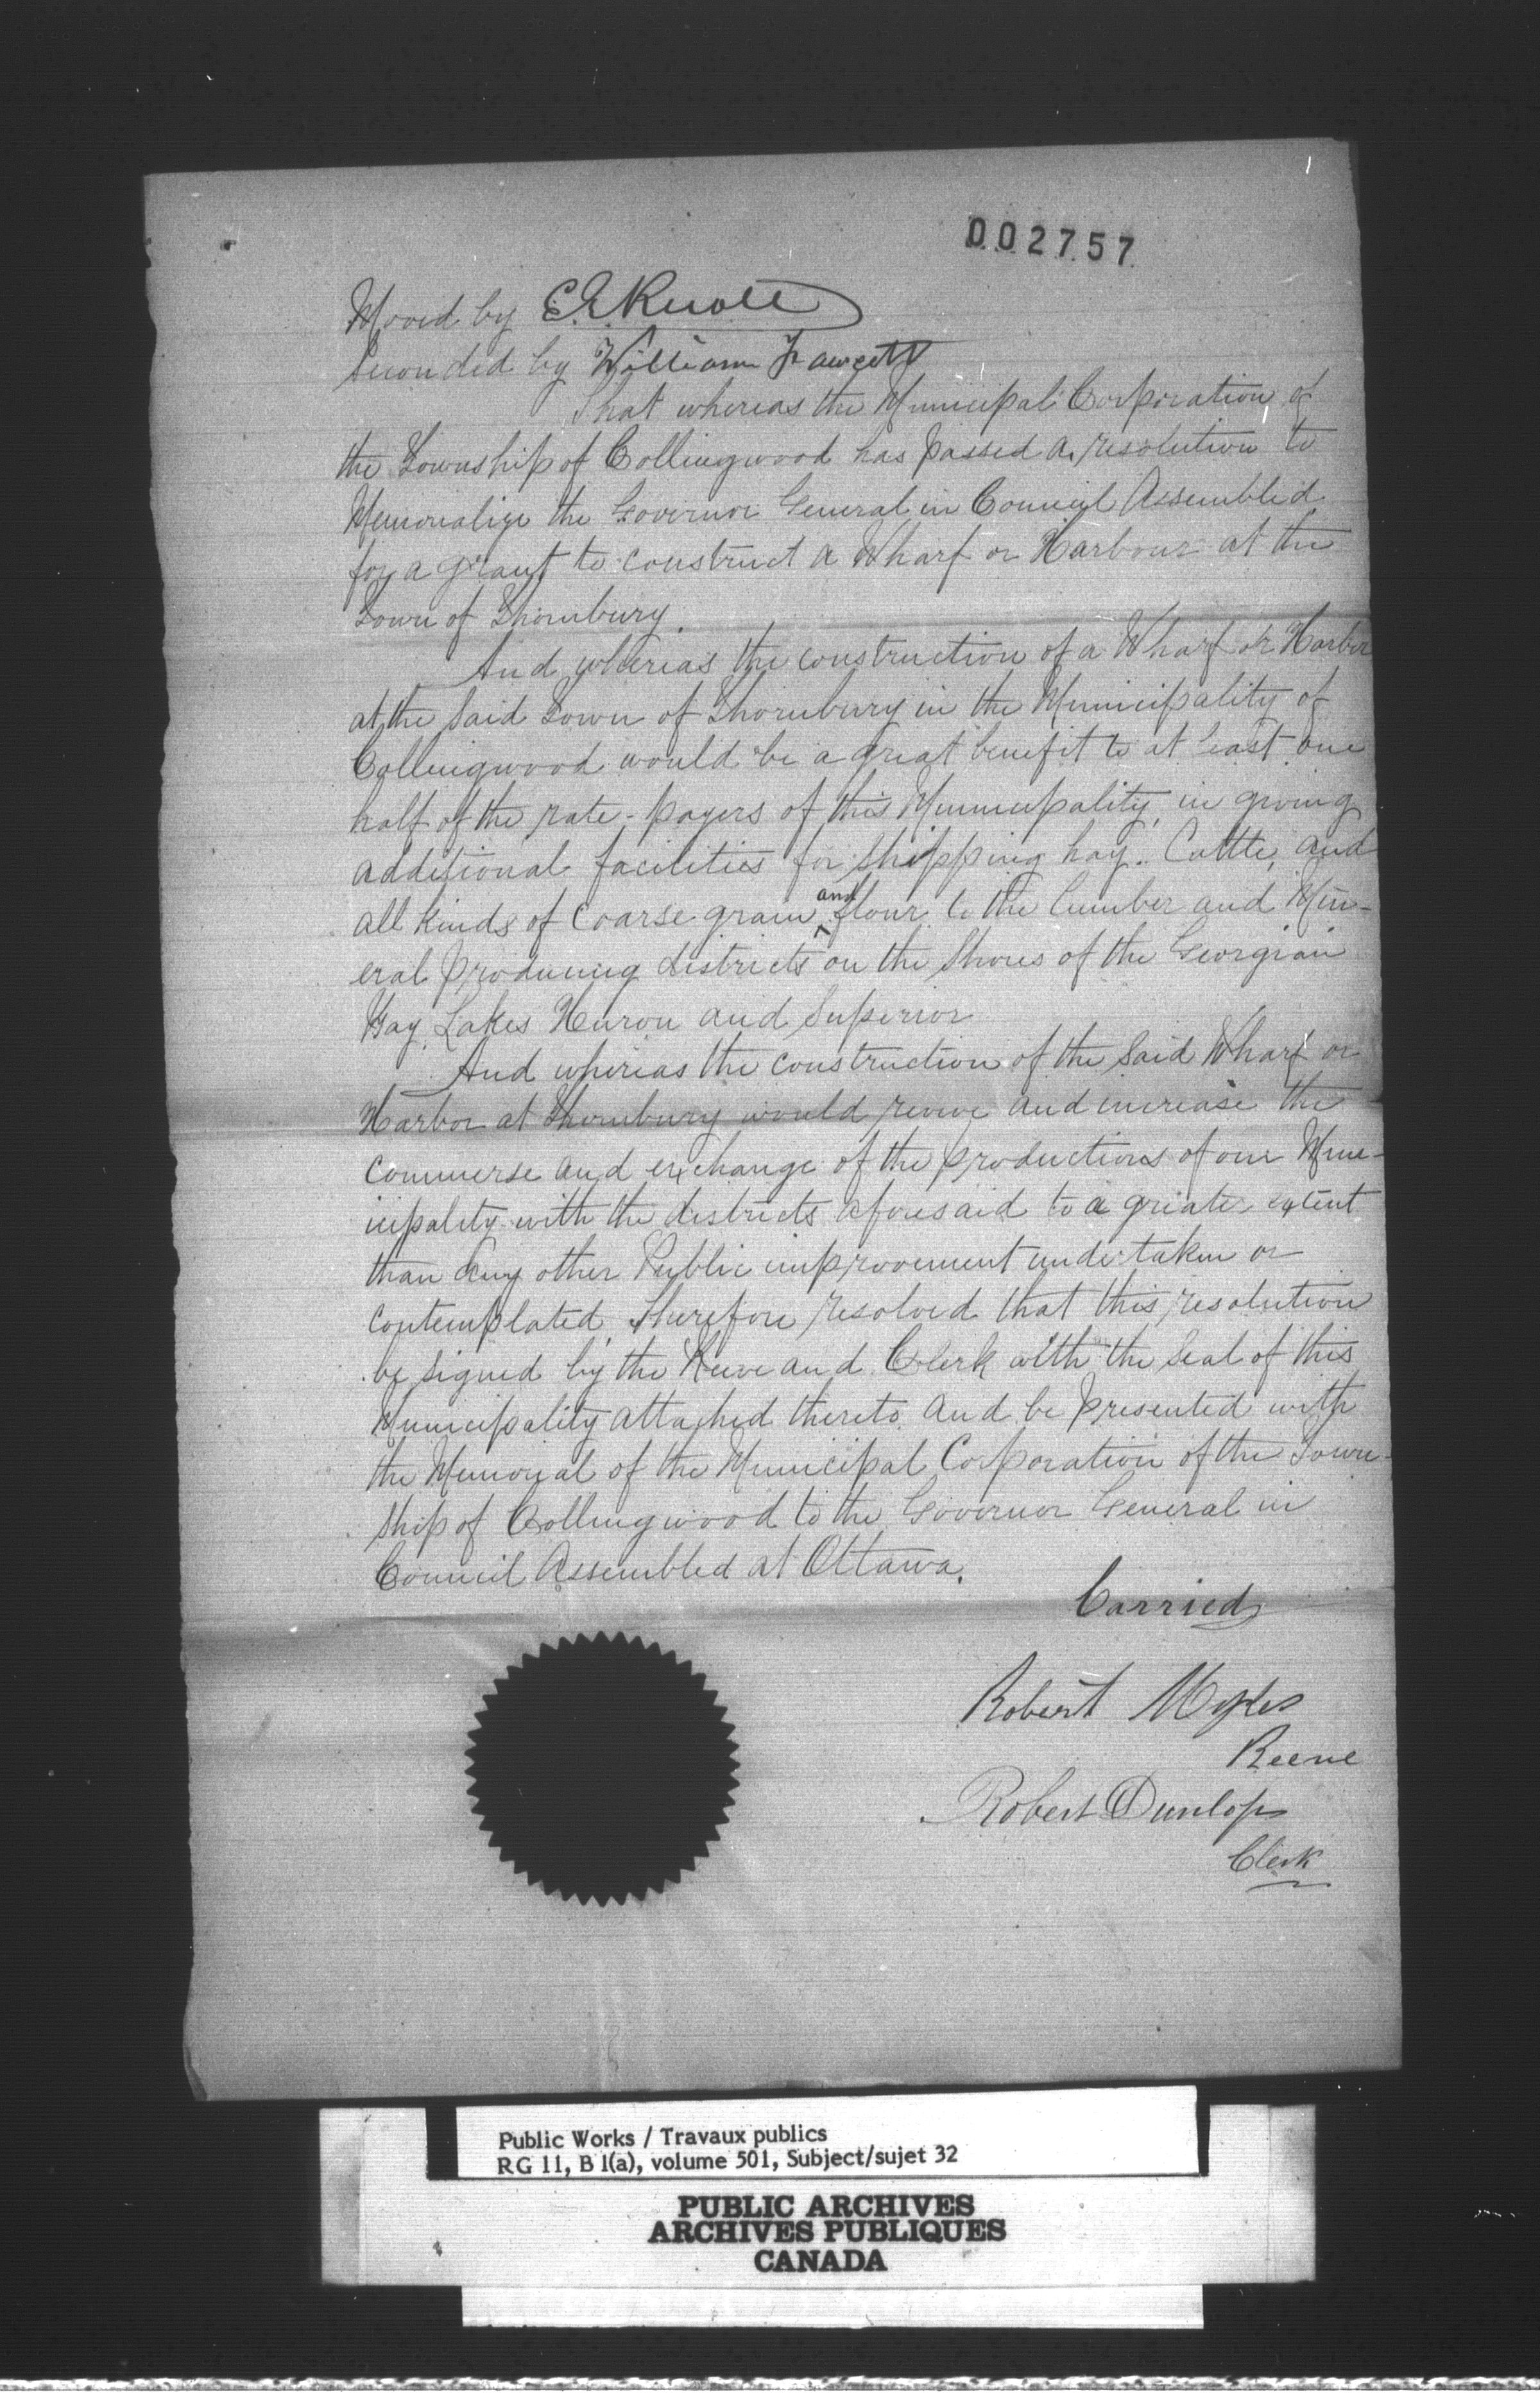 002757
Moved by E. E. Knott
Seconded by William Fawcett
That whereas the Municipal Corporation of
the Township of Collingwood has passed a resolution to
Memorialize the Governor General in Council Assembled
for a grant to construct a Wharf or Harbour at the
Town of Thornbury.
And whereas the construction of a Wharf or Harbor
at the said Town of Thornbury in the Municipality of
Collingwood would be a great benefit to at least one
half of the rate-payers of this Municipality, in giving
additional facilities for shipping hay. Cattle, and
all kinds of coarse grain and flour to the lumber and Min-
eral producing districts on the shores of the Georgian
Bay, Lakes Huron and Superior
And whereas the construction of the said Wharf or
Harbor at Thornbury would revive and increase the
commerse and exchange of the productions of our Mun-
icipality with the districts aforesaid to a greater extent
than any other Public improvement undertaken or
contemplated, Therefore resolved that this resolution
be signed by the Reeve and Clerk with the Seal of this
Municipality attached thereto and be presented with
the Memorial of the Municipal Corporation of the Town-
ship of Collingwood to the Governor General in
Council Assembled at Ottawa.
Carried
Robert Myles
Reeve
Robert Dunlop
Clerk
Public Works / Travaux publics
RG 11, B 1(a), volume 501, Subject/sujet 32
PUBLIC ARCHIVES
ARCHIVES PUBLIQUES
CANADA